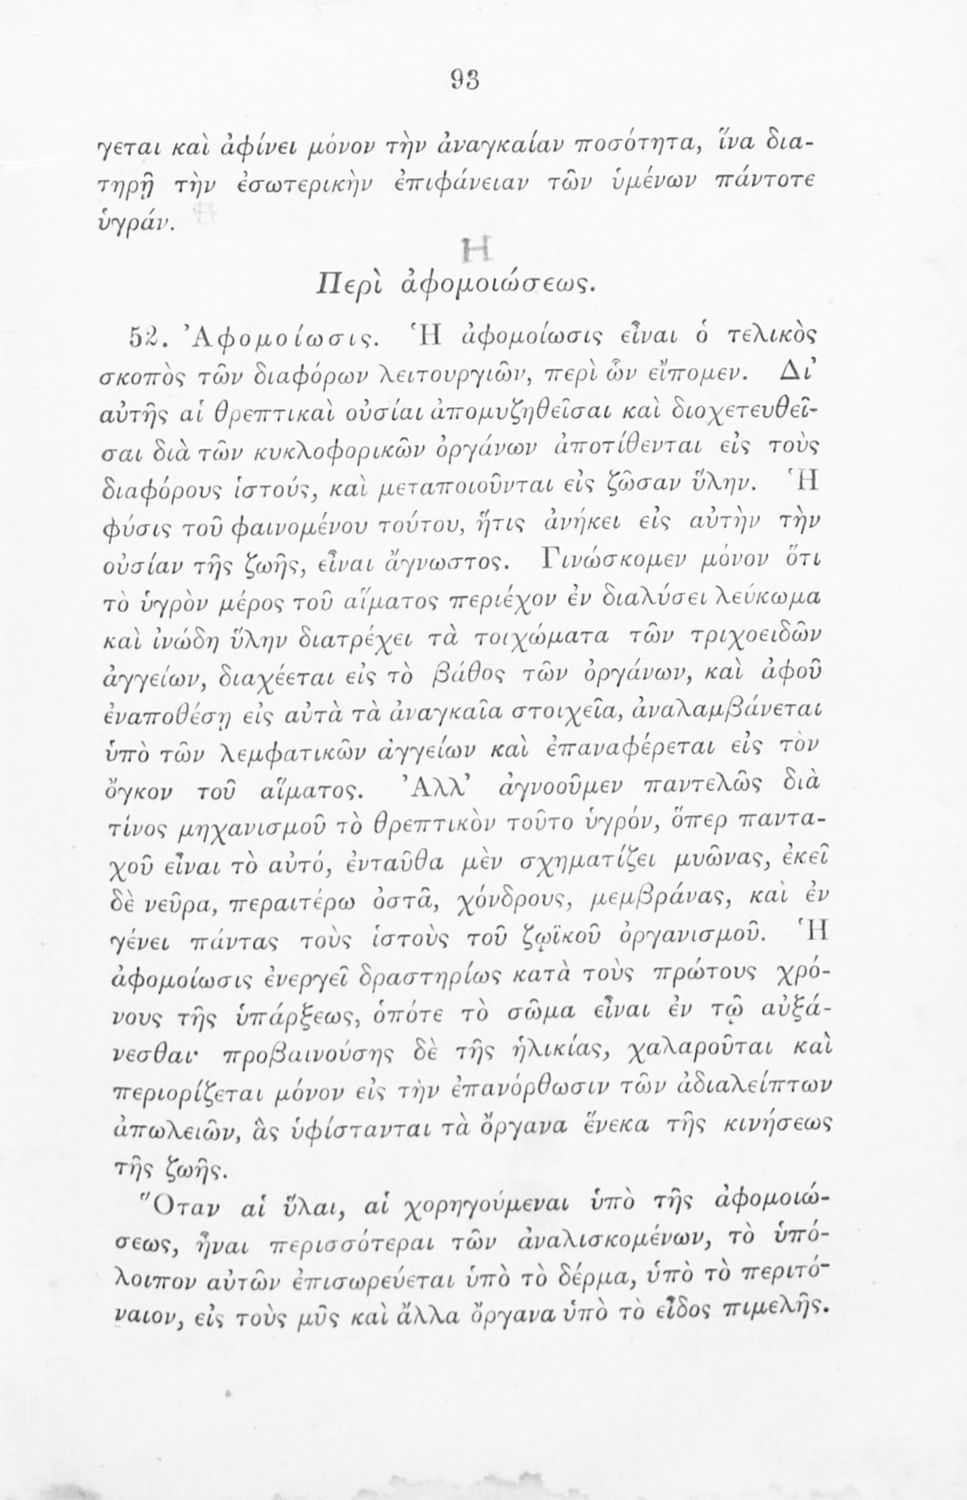 93
γεται καὶ ἀφίνει μόνον τὴν ἀναγκαίαν ποσότητα, ἵνα δια-
τηρῇ τὴν ἐσωτερικὴν ἐπιφάνειαν τῶν ὑμένων πάντοτε
ὑγράν.
Η
Περὶ ἀφομοιώσεως.
52. Ἀφομοίωσις. Ἡ ἀφομοίωσις εἶναι ὁ τελικὸς
σκοπὸς τῶν διαφόρων λειτουργιῶν, περὶ ὧν εἴπομεν. Δι’
αὐτῆς αἱ θρεπτικαὶ οὐσίαι ἀπομυζηθεῖσαι καὶ διοχετευθεῖ-
σαι διὰ τῶν κυκλοφορικῶν ὀργάνων ἀποτίθενται εἰς τοὺς
διαφόρους ἱστούς, καὶ μεταποιοῦνται εἰς ζῶσαν ὕλην. Ἡ
φύσις τοῦ φαινομένου τούτου, ἥτις ἀνήκει εἰς αὐτὴν τὴν
οὐσίαν τῆς ζωῆς, εἶναι ἄγνωστος. Γινώσκομεν μόνον ὅτι
τὸ ὑγρὸν μέρος τοῦ αἵματος περιέχον ἐν διαλύσει λεύκωμα
καὶ ἰνώδη ὕλην διατρέχει τὰ τοιχώματα τῶν τριχοειδῶν
ἀγγείων, διαχέεται εἰς τὸ βάθος τῶν ὀργάνων, καὶ ἀφοῦ
ἐναποθέσῃ εἰς αὐτὰ τὰ ἀναγκαῖα στοιχεῖα, ἀναλαμβάνεται
ὑπὸ τῶν λεμφατικῶν ἀγγείων καὶ ἐπαναφέρεται εἰς τὸν
ὄγκον τοῦ αἵματος. Ἀλλ’ ἀγνοοῦμεν παντελῶς διὰ
τίνος μηχανισμοῦ τὸ θρεπτικὸν τοῦτο ὑγρόν, ὅπερ παντα-
χοῦ εἶναι τὸ αὐτό, ἐνταῦθα μὲν σχηματίζει μυῶνας, ἐκεῖ
δὲ νεῦρα, περαιτέρω ὀστᾶ, χόνδρους, μεμβράνας, καὶ ἐν
γένει πάντας τοὺς ἱστοὺς τοῦ ζῳϊκοῦ ὀργανισμοῦ. Ἡ
ἀφομοίωσις ἐνεργεῖ δραστηρίως κατὰ τοὺς πρώτους χρό-
νους τῆς ὑπάρξεως, ὁπότε τὸ σῶμα εἶναι ἐν τῷ αὐξά-
νεσθαι· προβαινούσης δὲ τῆς ἡλικίας, χαλαροῦται καὶ
περιορίζεται μόνον εἰς τὴν ἐπανόρθωσιν τῶν ἀδιαλείπτων
ἀπωλειῶν, ἃς ὑφίστανται τὰ ὄργανα ἕνεκα τῆς κινήσεως
τῆς ζωῆς.
Ὅταν αἱ ὕλαι, αἱ χορηγούμεναι ὑπὸ τῆς ἀφομοιώ-
σεως, ἦναι περισσότεραι τῶν ἀναλισκομένων, τὸ ὑπό-
λοιπον αὐτῶν ἐπισωρεύεται ὑπὸ τὸ δέρμα, ὑπὸ τὸ περιτό-
ναιον, εἰς τοὺς μῦς καὶ ἄλλα ὄργανα ὑπὸ τὸ εἶδος πιμελῆς.